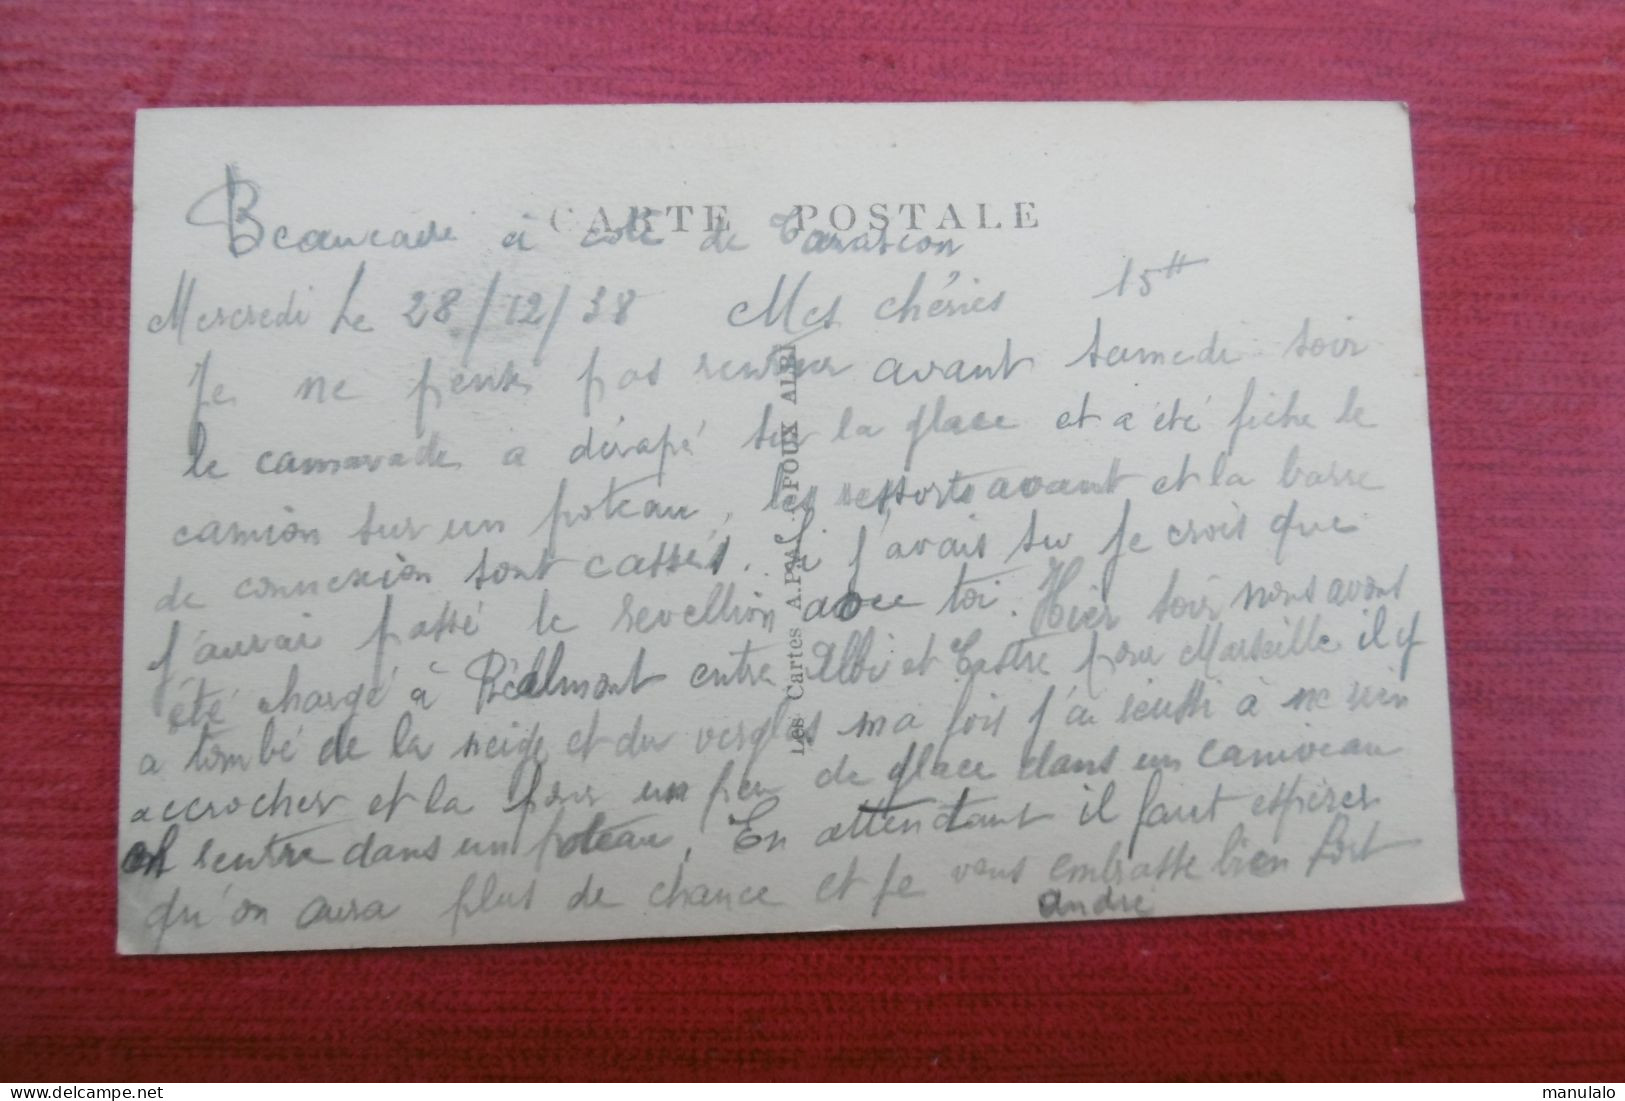 CARTE POSTALE
Beaucaire à coté de Tarascon
Mercredi Le 28/12/38 Mes chéries 15H
Je ne pense pas rentrer avant samedi soir
le camarade a dérapé sur la glace et a été fiche le
camion sur un poteau, les ressorts avant et la barre
de connexion sont cassés. Si j'avais su je crois que
j'aurai passé le revellion avec toi. Hier soir nous avons
été chargé à Réalmont entre Albi et Castre pour Marseille il y
a tombé de la neige et du verglas ma fois j'ai réussi à ne rien
accrocher et la pour un peu de glace dans un caniveau
est rentré dans un poteau. En attendant il faut espérer
qu'on aura plus de chance et je vous embrasse bien fort
andré
Les Cartes A.PALAPOUX ALBI
manulalo